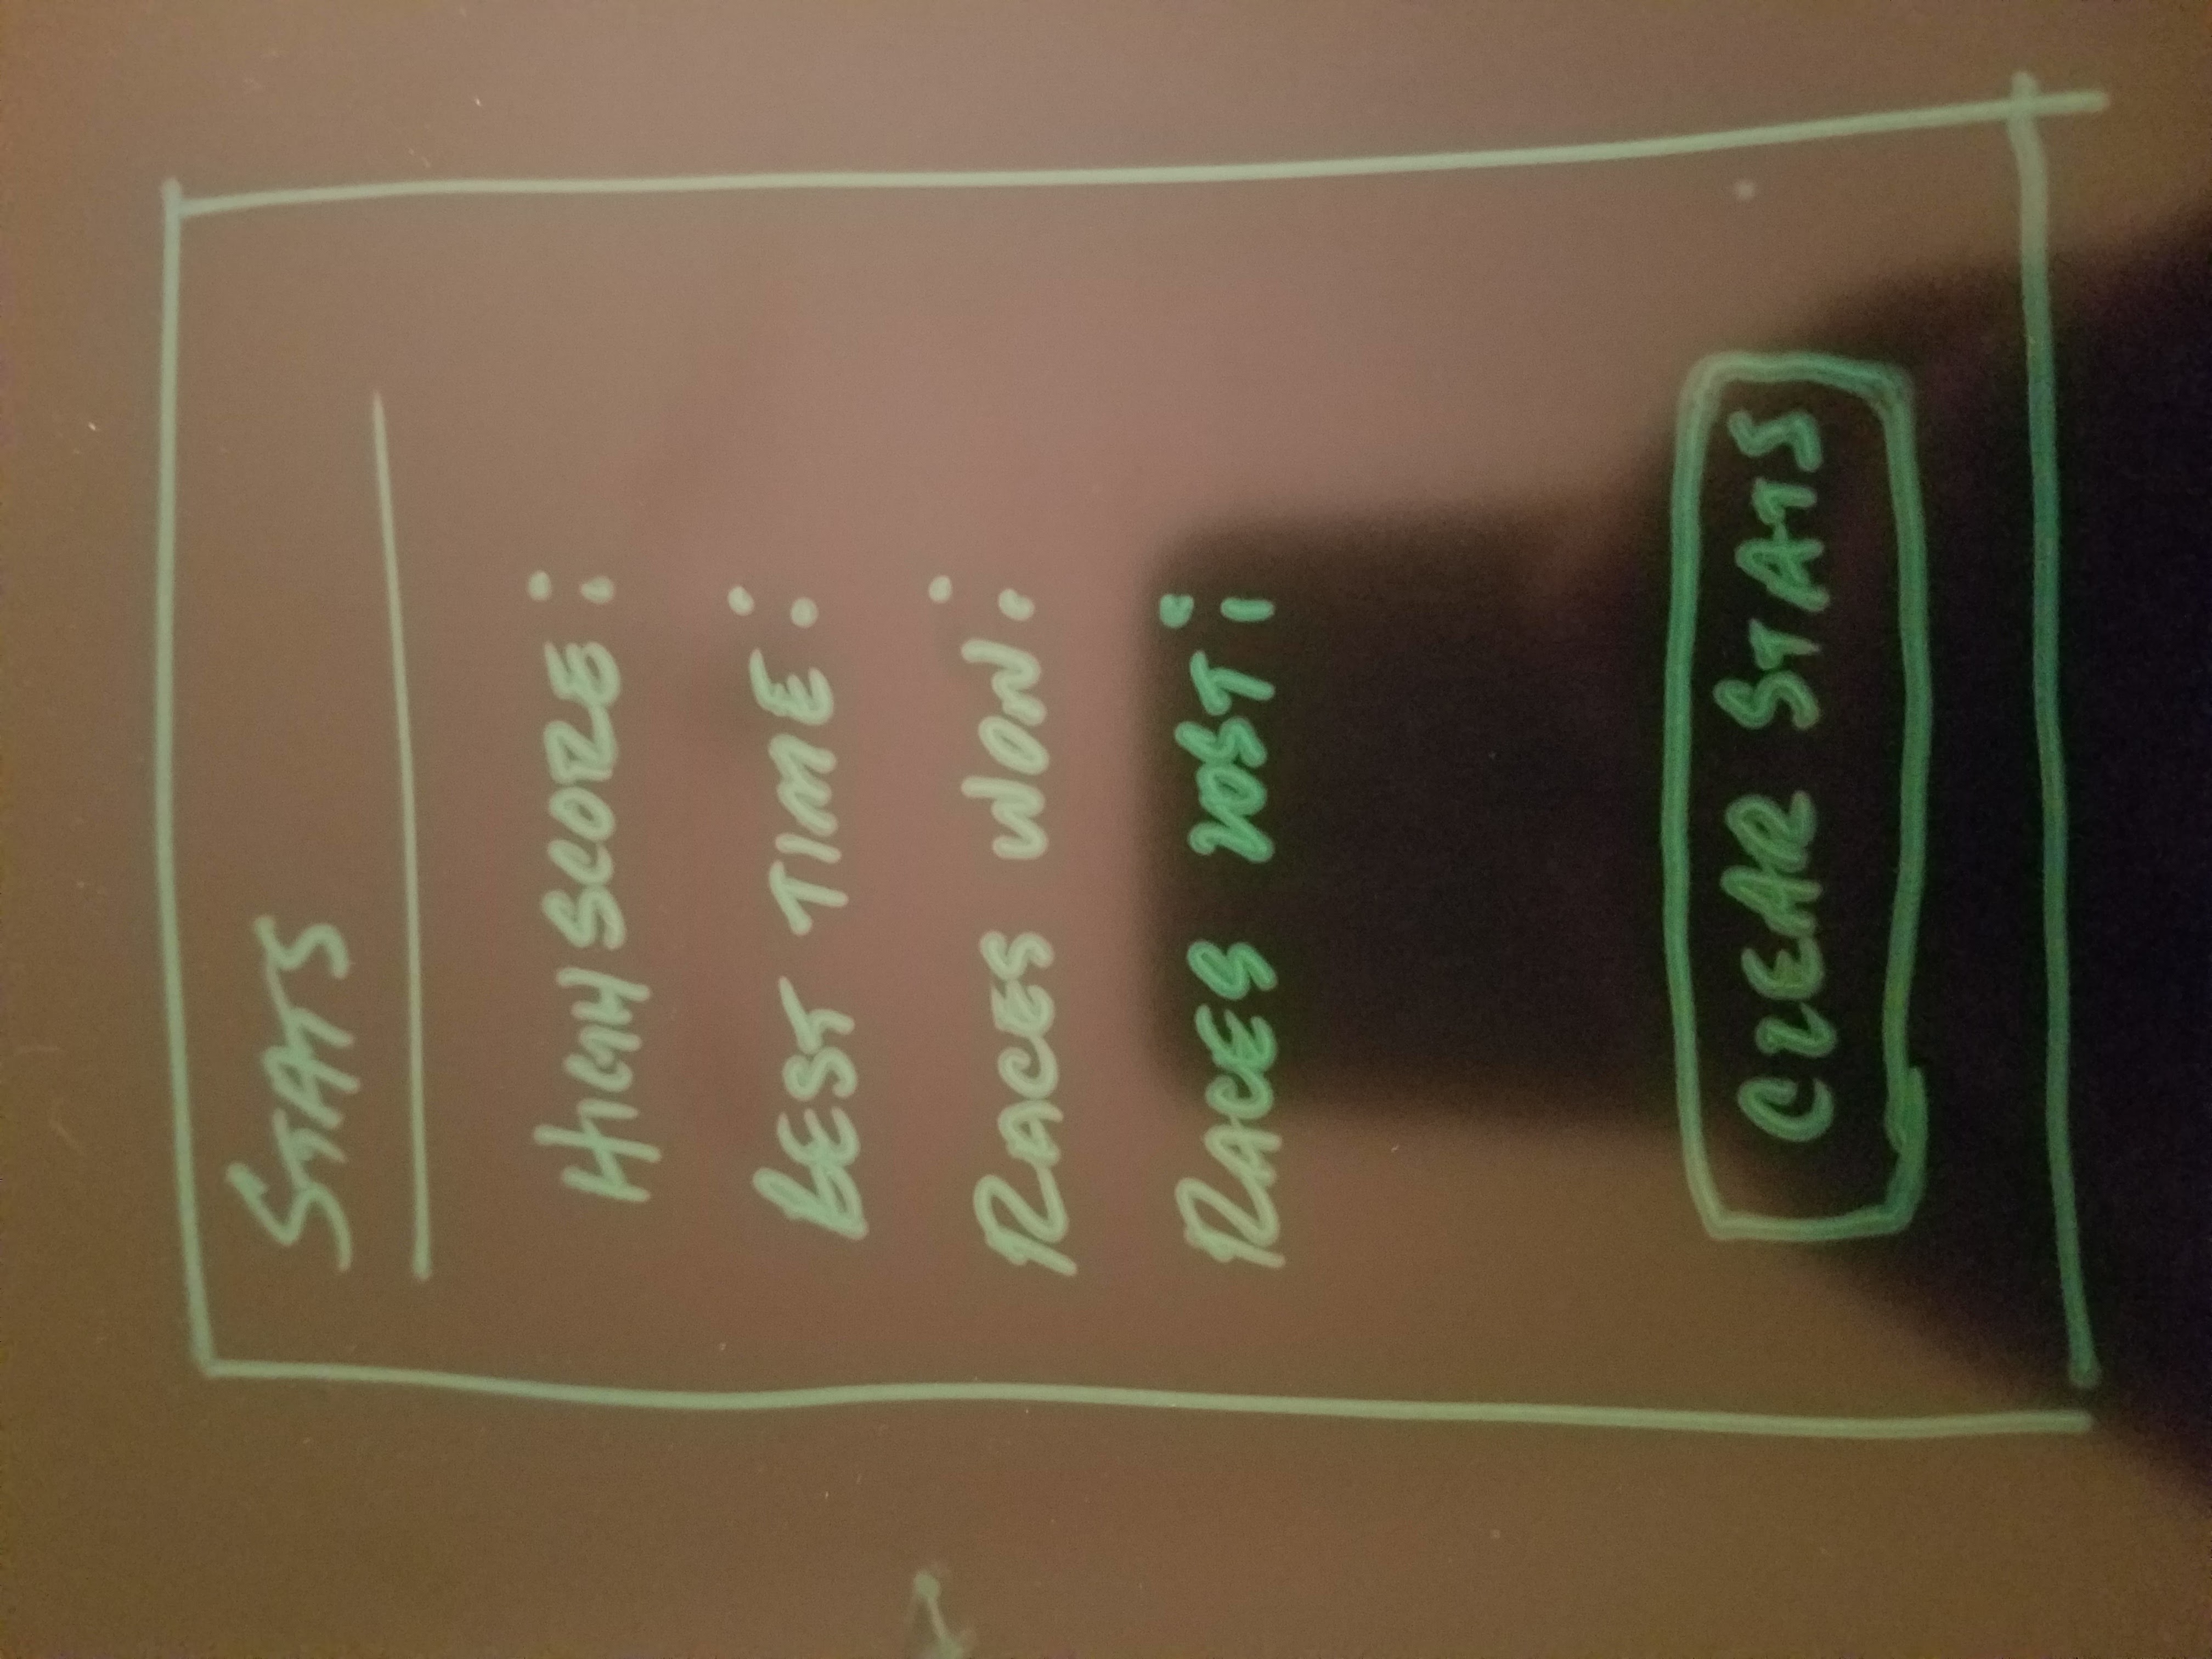 STATS
HIGHSCORE:
BEST TIME:
RACES WON:
RACES LOST:
CLEAR STATS